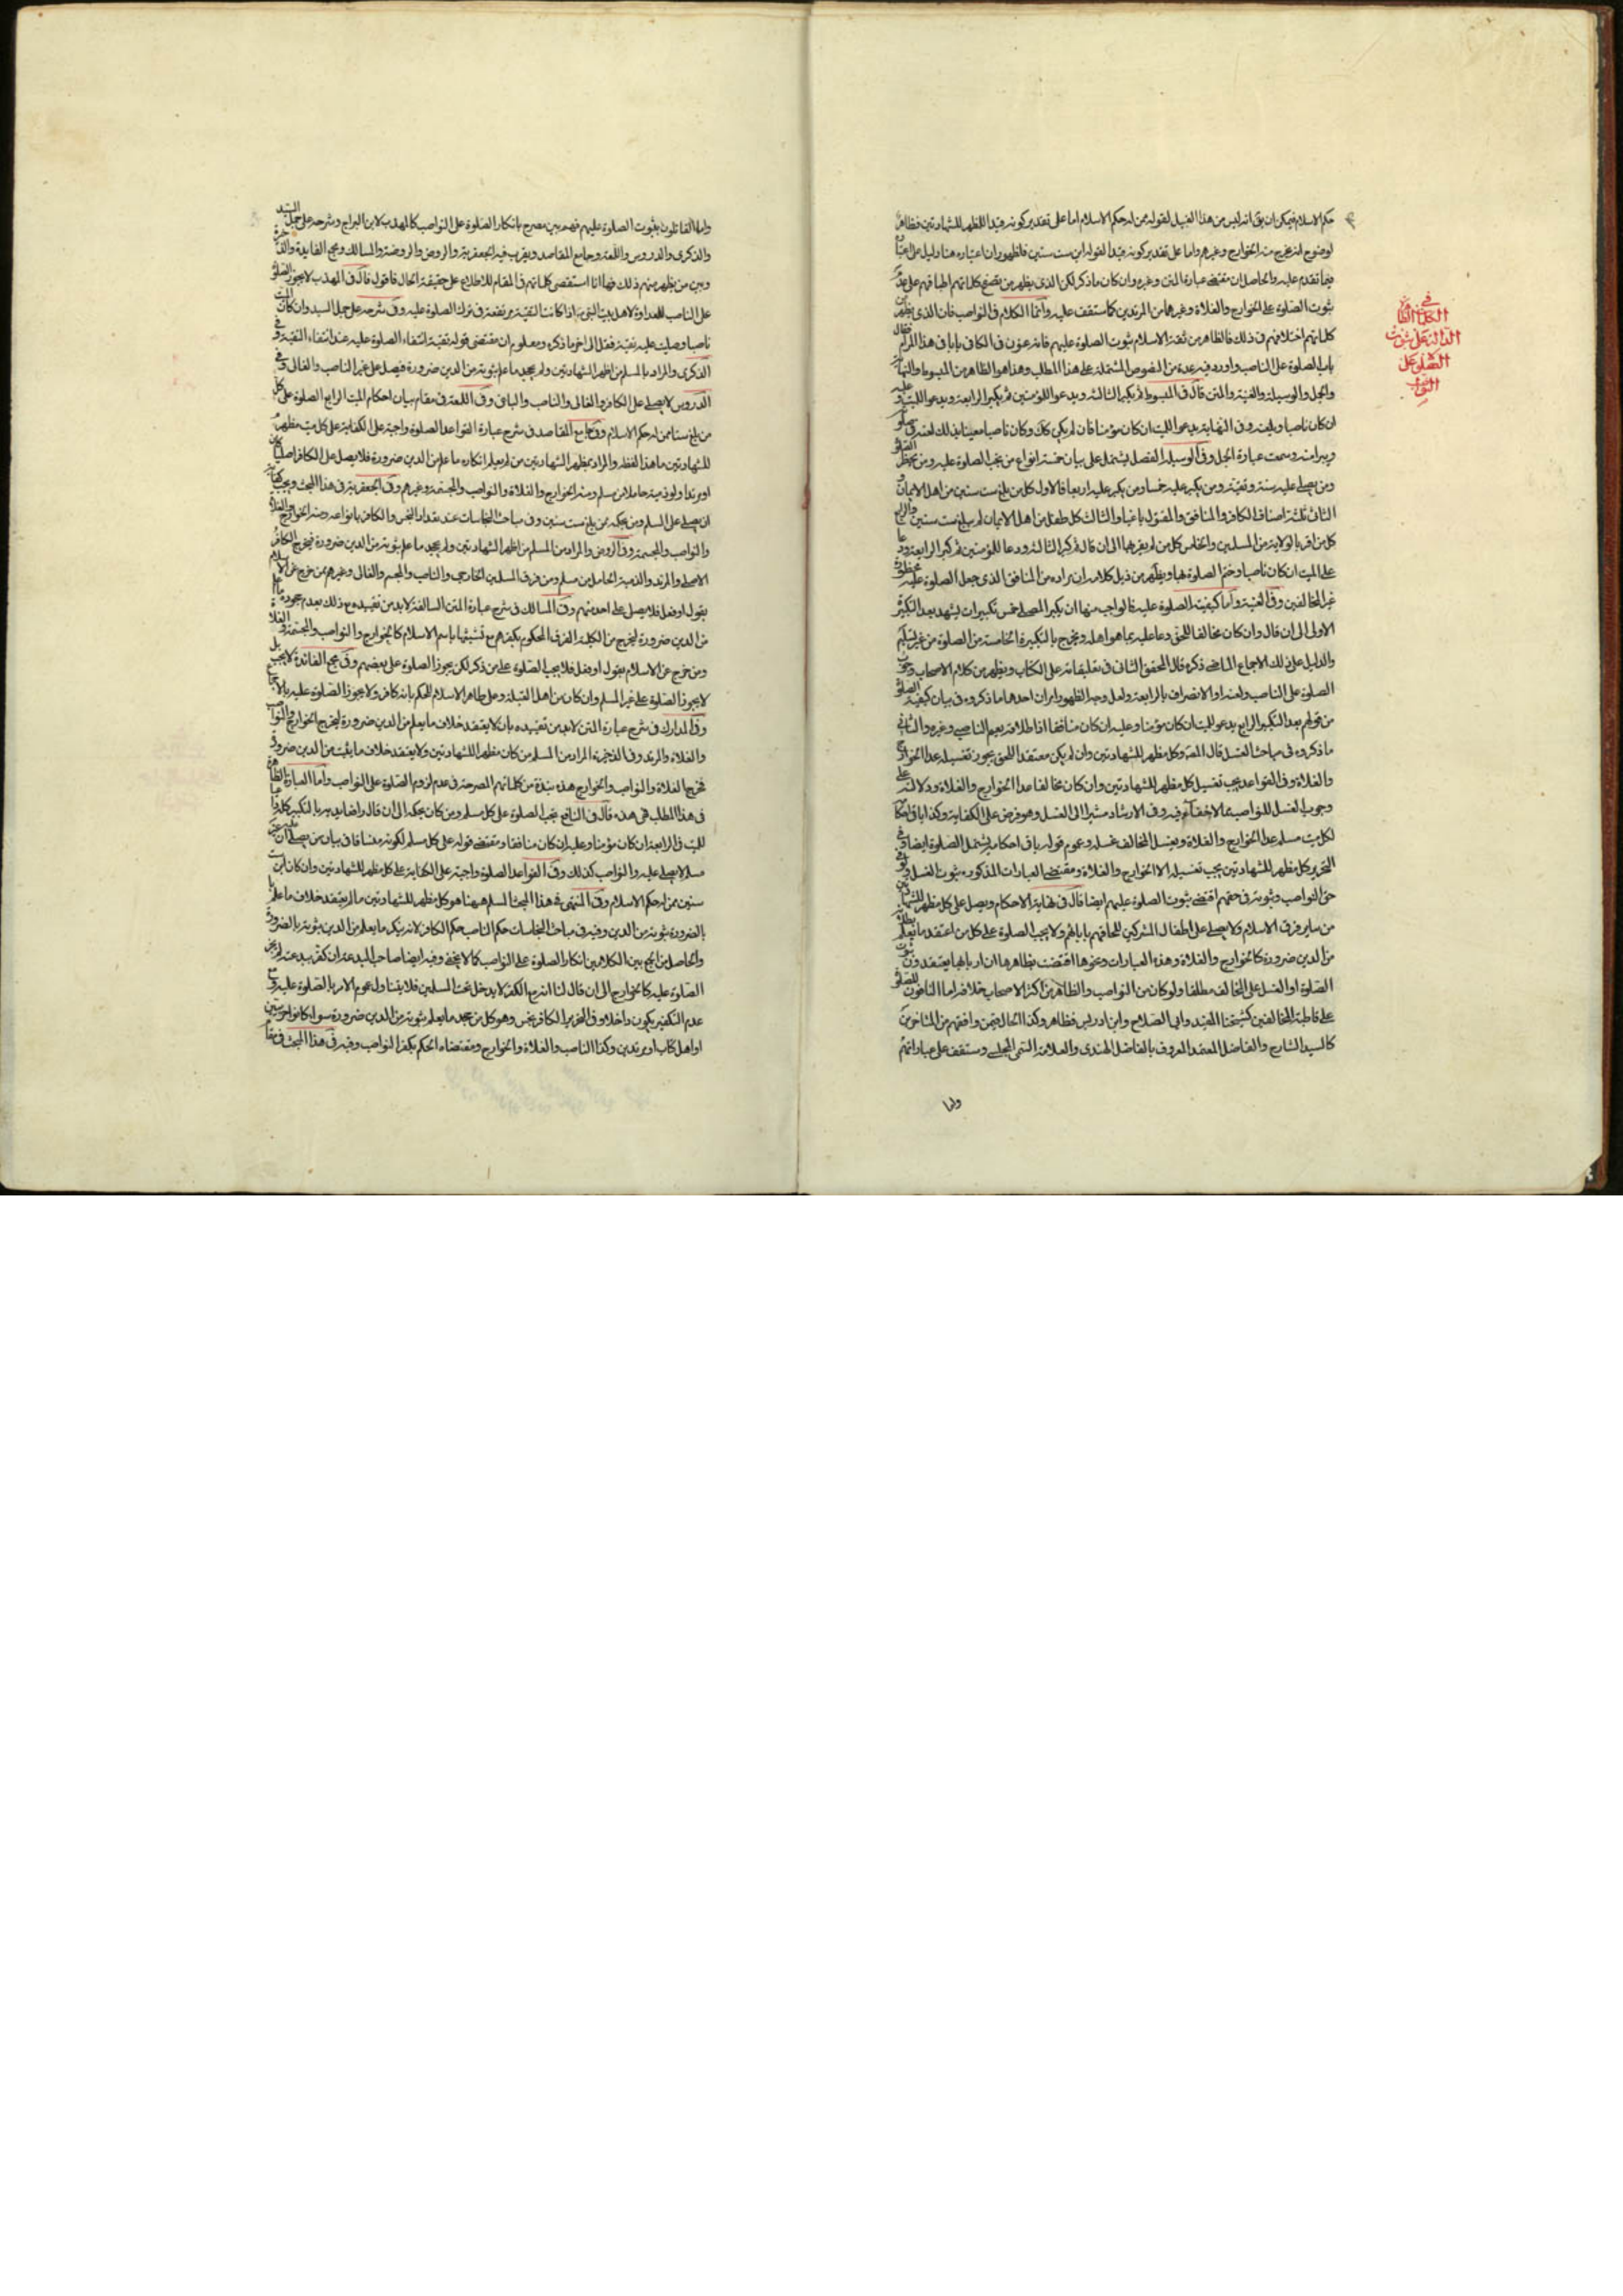 حكم الاسلام فيمكن ان يق انه ليس من هذا القبيل لقوله ممن له حكم الاسلام اما على تقدير كونه قيدا للمظهر للشهادتين فظاهر
لوضوح انه يخرج منه الخوارج وغيرهم واما على تقدير كونه قيدا لقوله ابن ست سنين فلظهور ان اعتباره هنا دليل على
فيما تقدم عليه والحاصل ان مقتضى عبارة المتن وغيره وان كان ما ذكر لكن الذي يظهر من تصفح كلماتهم اطباقهم على عدم
ثبوت الصلوة على الخوارج والغلاة وغيرهما من المرتدين كما ستقف عليه وانما الكلام في النواصب فان الذي يظهر من
كلماتهم اختلافهم في ذلك فالظاهر من ثقة الاسلام ثبوت الصلوة عليهم فانه عنون في الكافي بابا في هذا المرام فقال
باب الصلوة على الناصب واورد فيه عدة من النصوص المشتملة على هذا المطلب وهذا هو الظاهر من المبسوط والنهاية
والجمل والوسيلة والغنية والمتن قال في المبسوط ثم يكبر الثالثة ويدعو للمؤمنين ثم يكبر الرابعة ويدعو للميت وعليه
ان كان ناصبا ويلعنه وفي النهاية يدعو للميت ان كان مؤمنا فان لم يكن كك وكان ناصبا معينا بذلك لعنه في صلوته
ويبرا منه وسمعت عبارة الجمل وفي الوسيلة الفصل يشتمل على بيان خمسة انواع من يجب الصلوة عليه ومن يحظر الصلوة
ومن يصلى عليه سنة وتقية ومن يكبر عليه خمسا ومن يكبر عليه اربعا فالاول كل من بلغ ست سنين من اهل الايمان و
الثاني ثلثة اصناف الكافر والمنافق والمقتول باغيا والثالث كل طفل من اهل الايمان لم يبلغ ست سنين والرابع
كل من اقر بالولاية من المسلمين والخامس كل من لم يقر بها الى ان قال ثم كبر الثالثة ودعا للمؤمنين ثم كبر الرابعة ودعا
على الميت ان كان ناصبا وختم الصلوة بها ويظهر من ذيل كلامه ان مراده من المنافق الذي جعل الصلوة عليه محظورة
غير المخالفين وفي الغنية واما كيفية الصلوة عليه فالواجب منها ان يكبر المصلي خمس تكبيرات يشهد بعد التكبيرة
الاولى الى ان قال وان كان مخالفا للحق دعا عليه بما هو اهله ويخرج بالتكبيرة الخامسة من الصلوة من غير تسليم
والدليل على ذلك الاجماع الماضي ذكره قال المحقق الثاني في تعليقاته على الكتاب ويظهر من كلام الاصحاب وجوب
الصلوة على الناصب ولعنه او الانصراف بالرابعة ولعل وجه الظهور امران احدهما ما ذكروه في بيان كيفية الصلوة
من قولهم بعد التكبير الرابع يدعو للميت ان كان مؤمنا وعليه ان كان منافقا اذ اطلاقه يعم الناصبي وغيره والثاني
ما ذكروه في مباحث الغسل قال المصنف وكل مظهر للشهادتين وان لم يكن معتقد اللحق يجوز تغسيله عدا الخوارج
والغلاة وفي القواعد يجب تغسيل كل مظهر للشهادتين وان كان مخالفا عدا الخوارج والغلاة ودلالته على
وجوب الغسل للنواصب مما لا خفاء فيه وفي الارشاد مشيرا الى الغسل وهو فرض على الكفاية وكذا باقي احكامه
لكل ميت مسلم عدا الخوارج والغلاة ويغسل المخالف غسله وعموم قوله باقي احكامه يشتمل الصلوة ايضا وفي
التحرير كل مظهر للشهادتين يجب تغسيله الا الخوارج والغلاة ومقتضى العبارات المذكورة ثبوت الغسل في
حق النواصب وثبوته في حقهم اقتضى ثبوت الصلوة عليهم ايضا قال في نهاية الاحكام ويصلى على كل مظهر للشهادتين
من ساير فرق الاسلام ولا يصلى على اطفال المشركين للحاقهم بابائهم ولا يجب الصلوة على كل من اعتقد ما يعلم بطلانه
من الدين ضرورة كالخوارج والغلاة وهذه العبارات ونحوها اقتضت بظاهرها ان اربابها يعتقدون ثبوت
الصلوة او الغسل على المخالف مطلقا ولو كان من النواصب والظاهر من اكثر الاصحاب خلافه اما النافون للصلوة
على قاطبة المخالفين كشيخنا المفيد وابي الصلاح وابن ادريس فظاهر وكذا الحال فيمن وافقهم من المتاخرين
كالسيد الشارح والفاضل المعتمد المعروف بالفاضل الهندي والعلامة التقي المجلسي وستقف على عباراتهم
واما
في
الكلمات الظاهرة
الدالة على ثبوت
الصلوة على
النواصب
واما القائلون بثبوت الصلوة عليهم فهم بين مصرح بانكار الصلوة على النواصب كالمهذب لابن البراج وشرحه على جمل السيد
والذكرى والدروس واللمعة وجامع المقاصد ويقرب فيه الجعفرية والروض والروضة والمسالك ومجمع الفايدة والذخيرة
وبين من يظهر منهم ذلك فها انا استقصى كلماتهم في المقام للاطلاع على حقيقة الحال فاقول قال في المهذب لا يجوز الصلوة
على الناصب للعداوة لاهل بيت النبي ص اذا كانت التقية مرتفعة في ترك الصلوة عليه وفي شرحه على جمل السيد وان كان الميت
ناصبا وصليت عليه تقية فقل الى اخر ما ذكره ومعلوم ان مقتضى قوله تقية انتفاء الصلوة عليه عند انتفاء التقية وفي
الذكرى والمراد بالمسلم من اظهر الشهادتين ولم يجحد ما علم ثبوته من الدين ضرورة فيصلى على غير الناصب والغالي وفي
الدروس لا يصلى على الكافر والغالي والناصب والباغي وفي اللمعة في مقام بيان احكام الميت الرابع الصلوة على كل
من بلغ ستا ممن له حكم الاسلام وفي جامع المقاصد في شرح عبارة القواعد الصلوة واجبة على الكفاية على كل ميت مظهر
للشهادتين ما هذا لفظه والمراد بمظهر الشهادتين من لم يعلم انكاره ما علم من الدين ضرورة فلا يصلى على الكافر اصليا كان
او مرتدا ولو ذمية حاملا من مسلم ومنه الخوارج والغلاة والنواصب والمجسمة وغيرهم وفي الجعفرية في هذا المبحث ويجب
ان يصلى على المسلم ومن بحكمه ممن بلغ ست سنين وفي مباحث النجاسات عند تعداد النجس والكافر بانواعه ومنه الخوارج والغلاة
والنواصب والمجسمة وفي الروض والمراد من المسلم من اظهر الشهادتين ولم يجحد ما علم ثبوته من الدين ضرورة فيخرج الكافر
الاصلي والمرتد والذمية الحامل من مسلم ومن فرق المسلمين الخارجي والناصب والمجسم والغالي وغيرهم ممن خرج عن الاسلام
بقول او فعل فلا يصلى على احد منهم وفي المسالك في شرح عبارة المتن السالفة لا بد من تقييده مع ذلك بعدم جحوده ما علم
من الدين ضرورة ليخرج من الكلية الفرق المحكوم بكفرهم مع تشبثها باسم الاسلام كالخوارج والنواصب والمجسمة والغلاة
ومن خرج عن الاسلام بقول او فعل فلا يجب الصلوة على من ذكر لكن يجوز الصلوة على بعضهم وفي مجمع الفائدة لا يجب بل
لا يجوز الصلوة على غير المسلم وان كان من اهل القبلة وعلى ظاهر الاسلام للحكم بانه كافر ولا يجوز الصلوة عليه بالاجماع
وفي المدارك في شرح عبارة المتن لا بد من تقييده بان لا يعتقد خلاف ما يعلم من الدين ضرورة ليخرج الخوارج والنواصب
والغلاة والمرتد وفي الذخيرة المراد من المسلم من كان مظهرا للشهادتين ولا يعتقد خلاف ما يثبت من الدين ضرورة
فيخرج الغلاة والنواصب والخوارج هذه نبذة من كلماتهم المصرحة في عدم لزوم الصلوة على النواصب واما العبارة الظاهرة
في هذا المطلب فهي هذه قال في النافع يجب الصلوة على كل مسلم ومن كان بحكمه الى ان قال
للميت في الرابعة ان كان مؤمنا وعليه ان كان منافقا ومقتضى قوله على كل مسلم لكونه منساقا في بيان من يصلى عليه ان غير
مسلم لا يصلى عليه والنواصب كذلك وفي القواعد الصلوة واجبة على الكفاية على كل مظهر للشهادتين وان كان ابن ست
سنين ممن له حكم الاسلام وفي المنتهى في هذا المبحث المسلم ههنا هو كل مظهر للشهادتين ما لم يعتقد خلاف ما علم
بالضرورة ثبوته من الدين وفيه في مباحث النجاسات حكم الناصب حكم الكافر لانه ينكر ما يعلم من الدين ثبوته بالضرورة
والحاصل من الجمع بين الكلامين انكار الصلوة على النواصب كما لا يخفى وفيه ايضا صاحب البدعة ان كفر ببدعته لم يجز
الصلوة عليه كالخوارج الى ان قال لنا انه مع الكفر لا يدخل تحت المسلمين فلا يتناوله عموم الامر بالصلوة عليه ومع
عدم التكفير يكون داخلا وفي التحرير الكافر نجس وهو كل من جحد ما يعلم ثبوته من الدين ضرورة سواء كانوا حربيين
او اهل كتاب او مرتدين وكذا الناصب والغلاة والخوارج ومقتضاه الحكم بكفر النواصب وفيه في هذا المبحث في مقام